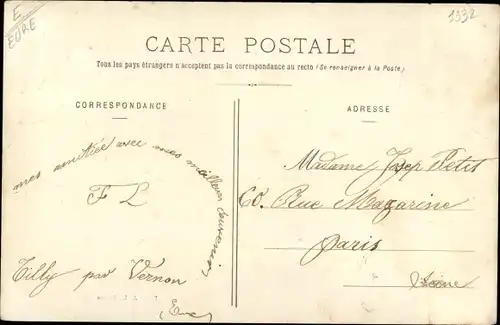 E
EURE
1932
CARTE POSTALE
Tous les pays étrangers n'acceptent pas la correspondance au recto (Se renseigner à la Poste)
CORRESPONDANCE
mes amitiée avec mes meilleurs souvenirs
F L
Tilly par Vernon
(Eure)
ADRESSE
Madame Josep Petit
60. Rue Mazarine
Paris
Seine